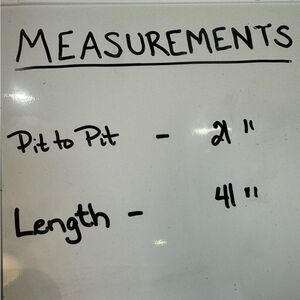 MEASUREMENTS
Pit to Pit - 21"
Length - 41"